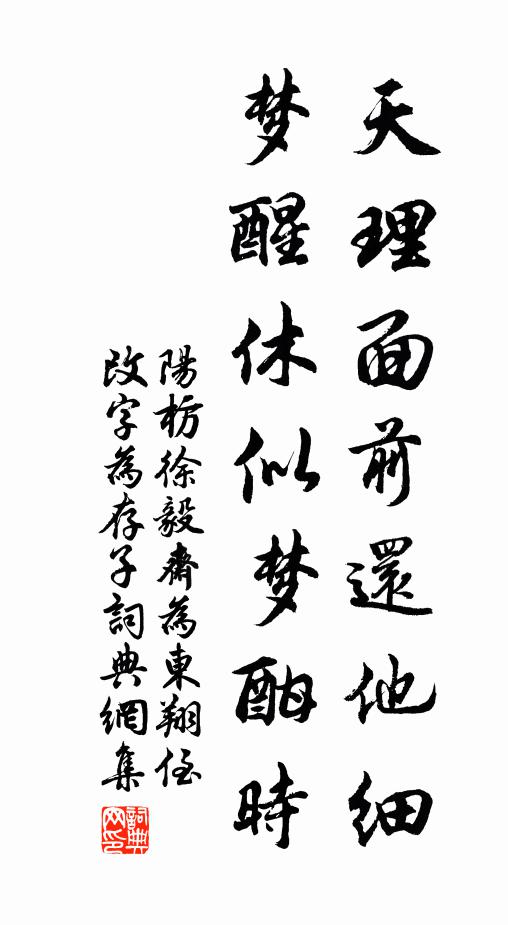 天理面前還他細
梦醒休似梦酣時
陽枋徐毅齋為東翔侄
改字為存子詞典網集
詞典网印